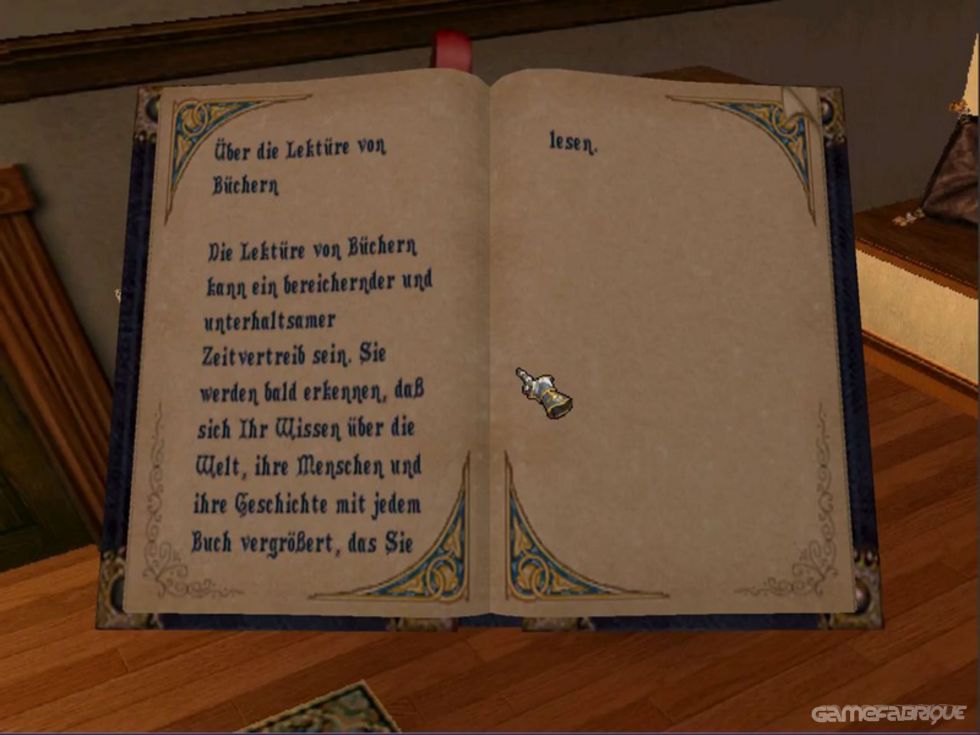 Über die Lektüre von
Büchern
Die Lektüre von Büchern
kann ein bereichernder und
unterhaltsamer
Zeitvertreib sein. Sie
werden bald erkennen, daß
sich Ihr Wissen über die
Welt, ihre Menschen und
ihre Geschichte mit jedem
Buch vergrößert, das Sie
lesen.
GAMEFABRIQUE